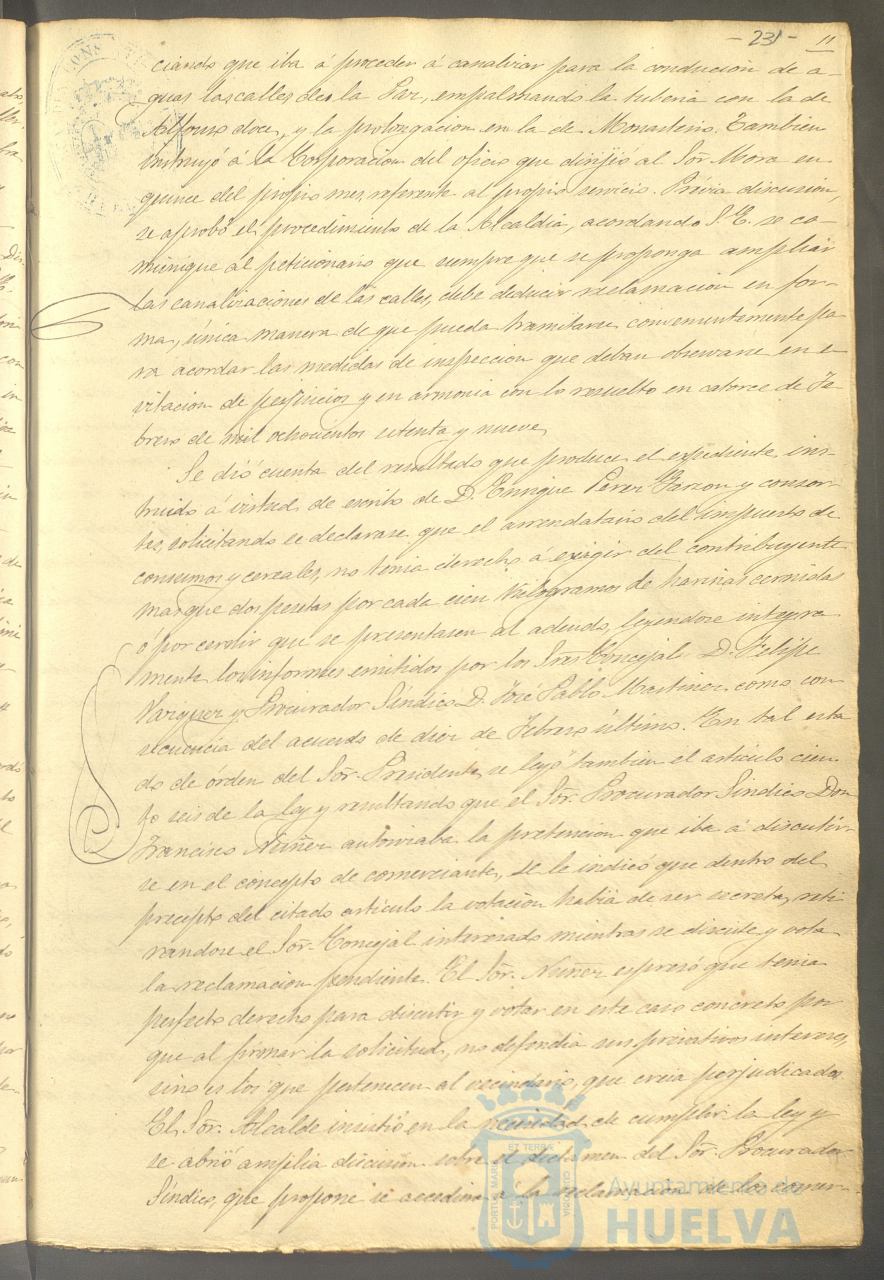 - 231 - 11
ciando que iba á proceder á canalizar para la conducion de a-
guas las calles de la Paz, empalmando la tuberia con la de
Alfonso doce, y la prolongacion en la de Monasterio. Tambien
instruyó á la Corporacion del oficio que dirijió al Sor. Mora en
quince del propio mes, referente al propio servicio. Prévia discusion,
se aprobó el procedimiento de la Alcaldia, acordando S. E. se co-
munique al peticionario que siempre que se proponga ampliar
las canalizaciones de las calles, debe deducir reclamacion en for-
ma, única manera de que pueda tramitarse, convenientemente pa-
ra acordar las medidas de inspeccion que deban observarse en e-
vitacion de perjuicios y en armonia con lo resuelto en catorce de Fe-
brero de mil ochocientos setenta y nueve.
Se dió cuenta del resultado que produce el expediente ins-
truido á virtud de escrito de D. Enrique Perez Garzon y consor-
tes, solicitando se declarase que el arrendatario del impuesto de
consumos y cereales, no tenia derecho á exigir del contribuyente
mas que dos pesetas por cada cien kilogramos de harinas cernidas
ó por cernir que se presentasen al adeudo, leyendose integra-
mente los informes emitidos por los Sres. Concejal D. Felipe
Vazquez y Procurador Síndico D. José Pablo Martinez como con-
secuencia del acuerdo de diez de Febrero último. En tal esta-
do de órden del Sor. Presidente, se leyó tambien el artículo cien-
to seis de la Ley y resultando que el Sor. Procurador Síndico Don
Francisco Nuñez autorizaba la pretencion que iba á discutir-
se en el concepto de comerciante, se le indicó que dentro del
precepto del citado artículo la votacion habia de ser secreta, reti-
randose el Sor. Concejal interesado mientras se discute y vota
la reclamacion pendiente. El Sor. Nuñez espresó que tenia
perfecto derecho para discutir y votar en este caso concreto por
que al firmar la solicitud, no defendia sus privativos intereses,
sino es los que pertenecen al vecindario, que creia perjudicados.
El Sor. Alcalde insistió en la necesidad de cumplir la ley y
se abrió amplia discusion sobre el dictamen del Sor. Procurador
Síndico, que propone se accediera á la reclamacion de los comer-
PORTUS MARIS
ET TERRÆ
CUSTODIA
Ayuntamiento de
HUELVA